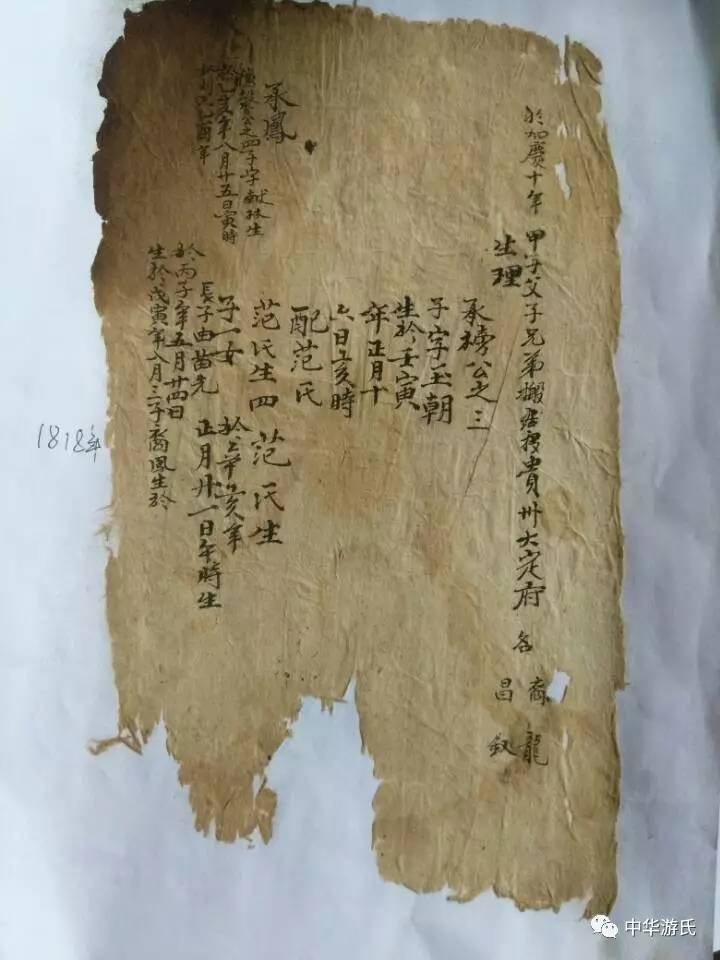 於加慶十年 甲子父子兄弟搬移貴州大定府 各 裔龍
生理 昌
承榜公之三
子字玉朝
生於壬寅
年正月十
六日亥時
配范氏
范氏生四 范氏生
子一女 於辛亥年
長子由苗先 正月廿一日午時生
於丙子年五月廿四日
生於戊寅年八月三子裔鳳生於
承鳳
公之四子字献林生
於乙亥年八月廿五日寅時
酉年
1818年
中华游氏